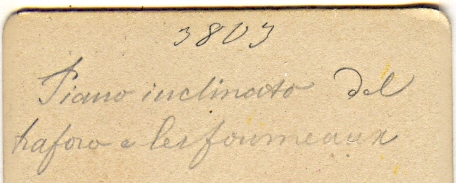 3803
Piano inclinato del
traforo a les fourneaux